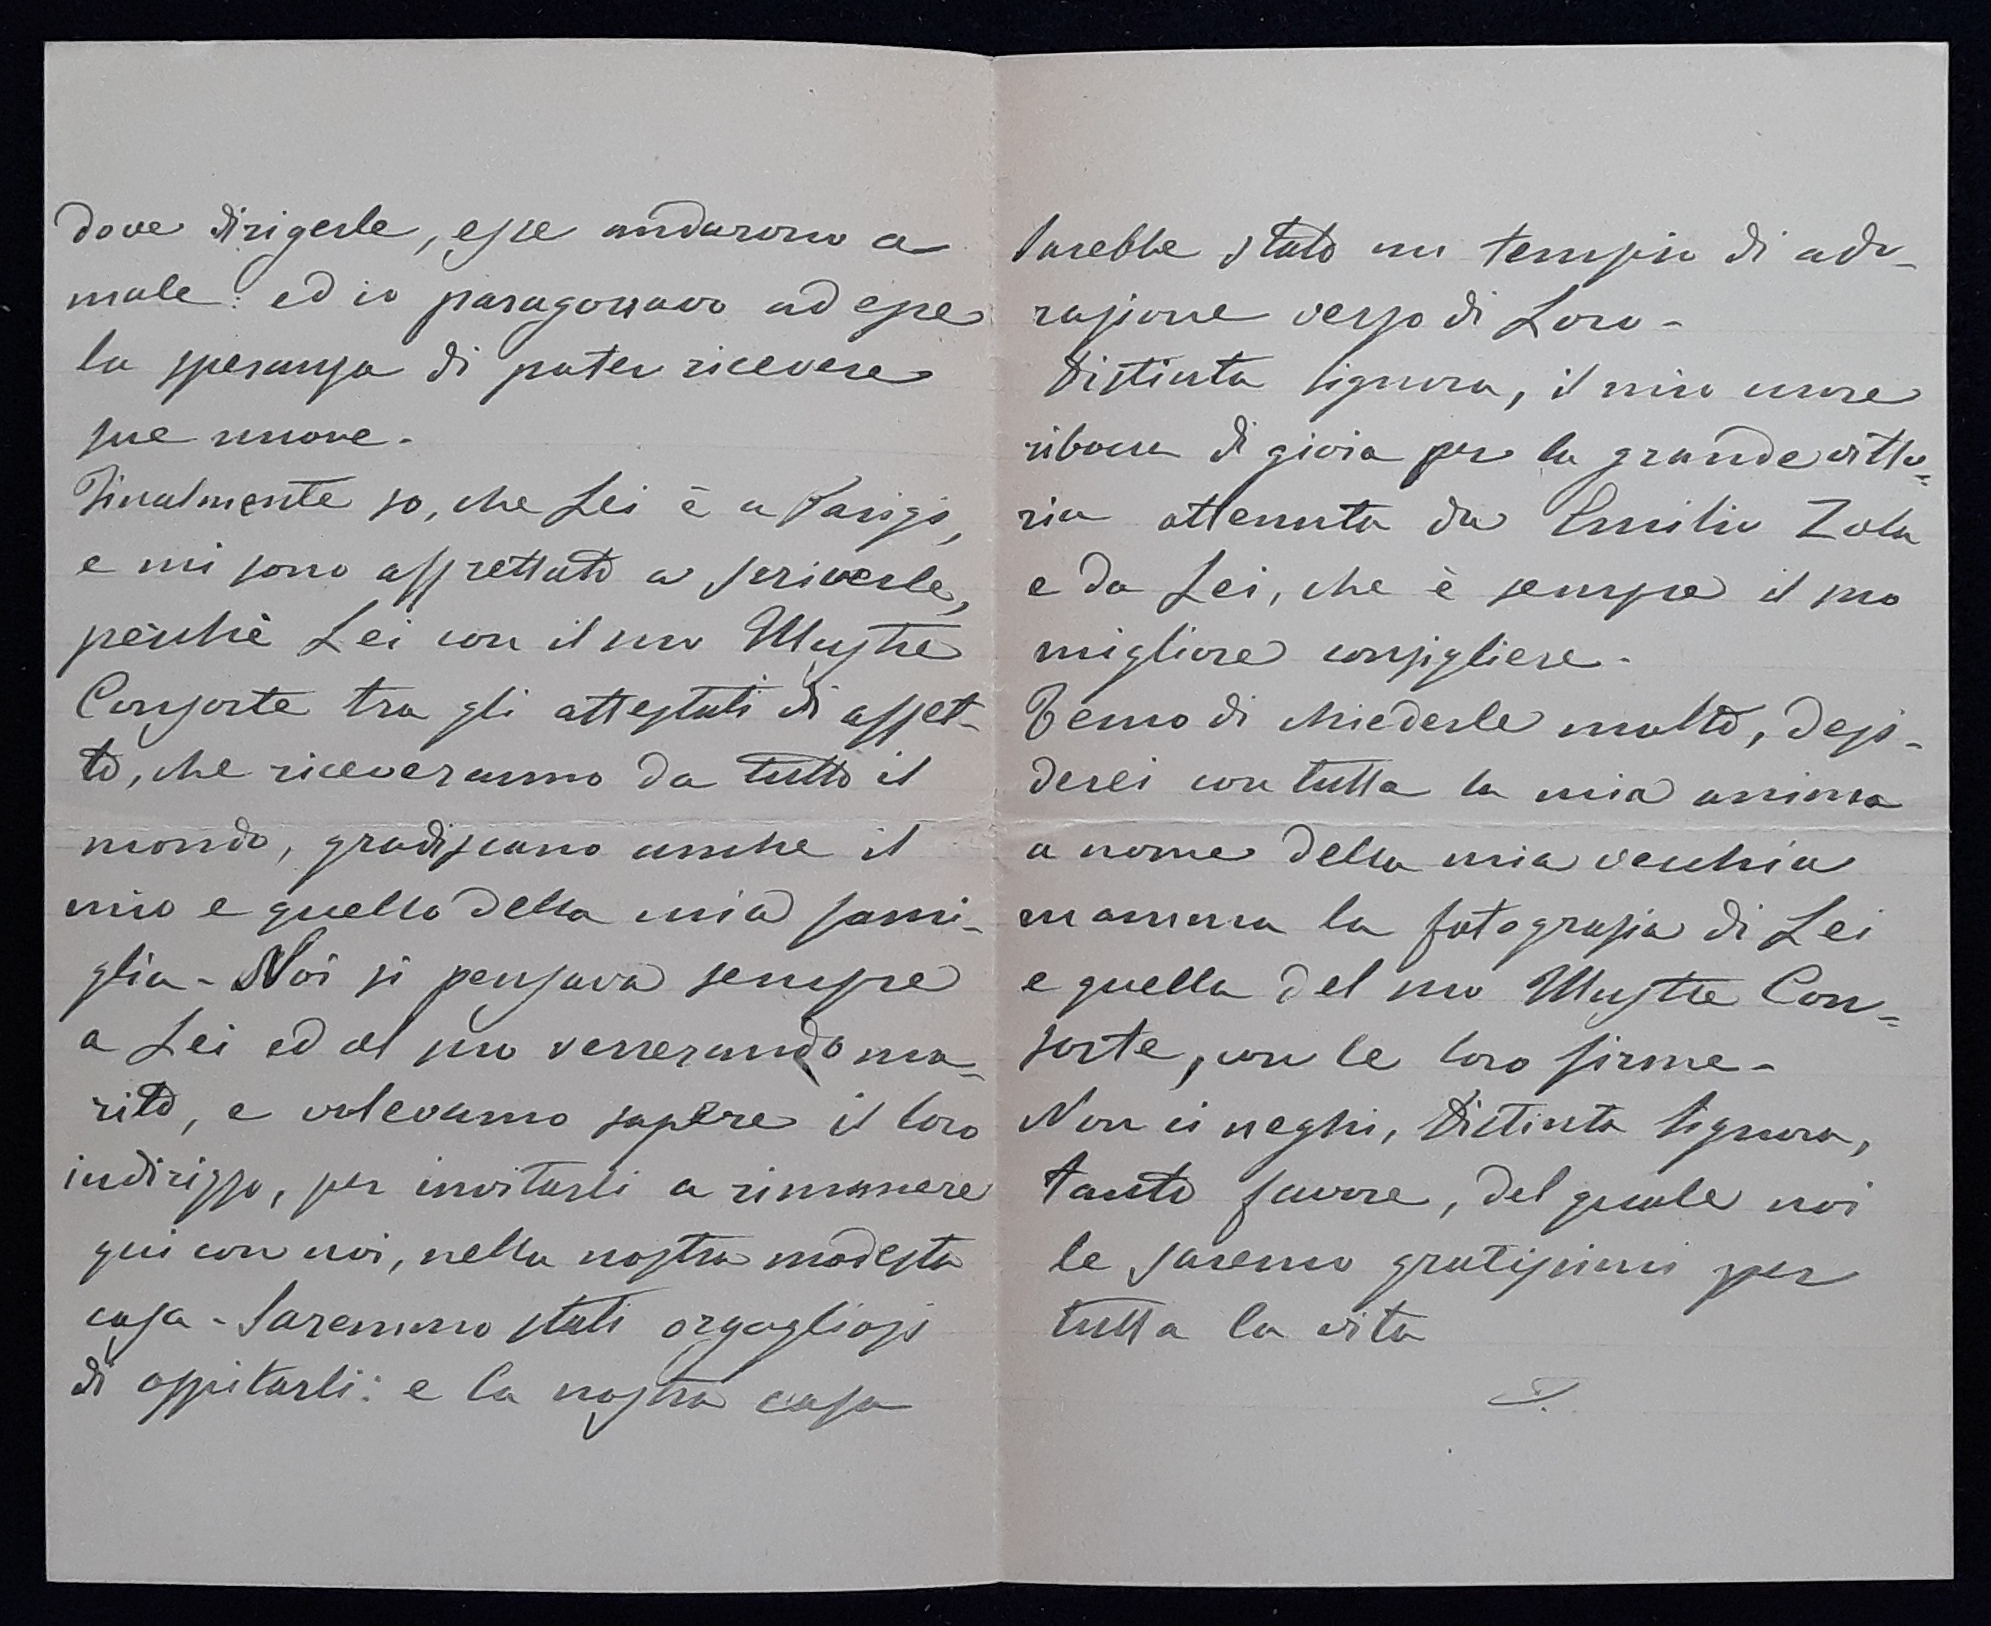 dove dirigerle, esse andarono a
male: ed io paragonavo ad esse
la speranza di poter ricevere
sue nuove.
Finalmente so, che Lei è a Parigi,
e mi sono affrettato a scriverle,
perchè Lei con il suo Illustre
Consorte tra gli attestati di affet-
to, che riceveranno da tutto il
mondo, gradiscano anche il
mio e quello della mia fami-
glia - Noi si pensava sempre
a Lei ed al suo venerando ma=
rito, e volevamo sapere il loro
indirizzo, per invitarli a rimanere
qui con noi, nella nostra modesta
casa - Saremmo stati orgogliosi
di ospitarli: e la nostra casa
sarebbe stato un tempio di ado-
razione verso di Loro -
Distinta Signora, il mio cuore
ribocca di gioia per la grande vitto=
ria ottenuta da Emilio Zola
e da Lei, che è sempre il suo
migliore consigliere -
Temo di chiederle molto, desi-
derei con tutta la mia anima
a nome della mia vecchia
mamma la fotografia di Lei
e quella del suo Illustre Con=
sorte, con le loro firme -
Non ci neghi, Distinta Signora,
tanto favore, del quale noi
le saremo gratissimi per
tutta la vita